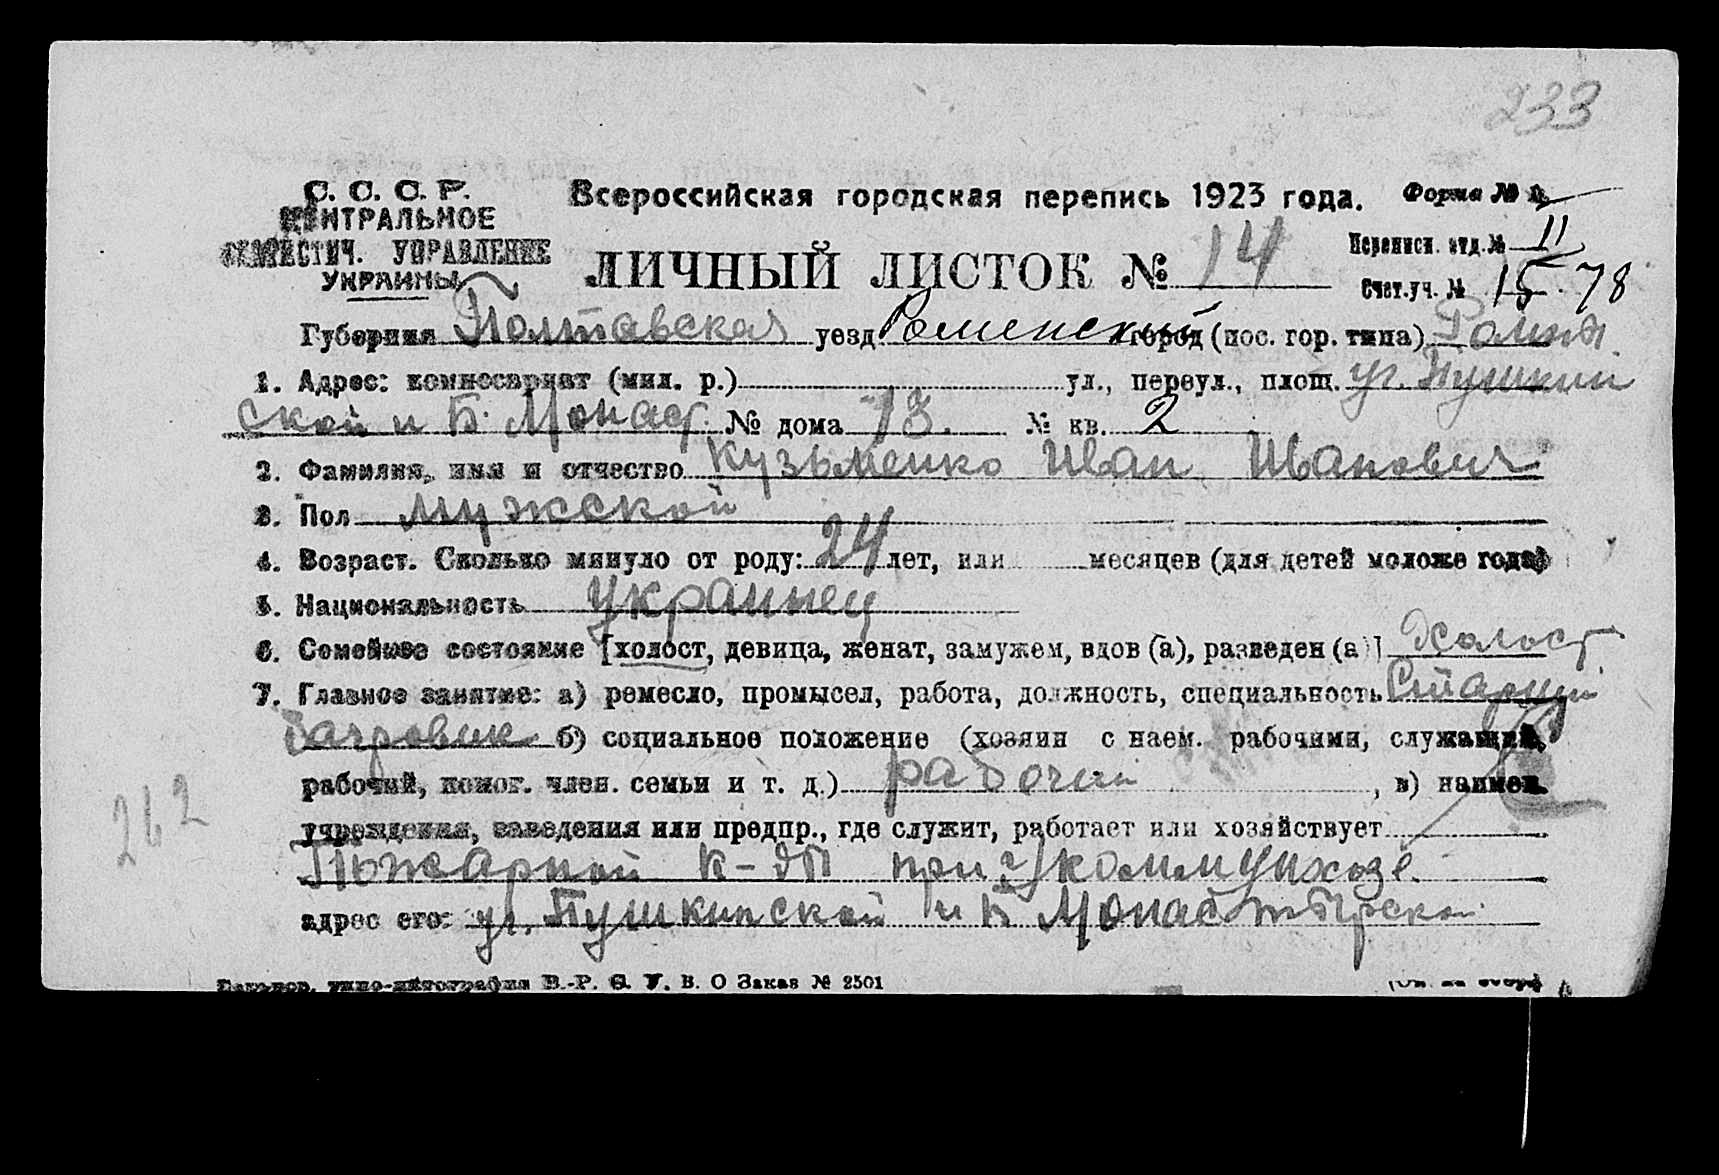 233
С. С. С. Р.
ЦЕНТРАЛЬНОЕ
СТАТИСТИЧ. УПРАВЛЕНИЕ
УКРАИНЫ
Всероссийская городская перепись 1923 года. Форма №
ЛИЧНЫЙ ЛИСТОК № 14
Переписн. отд. № II
Счет. уч. № 15. 78
Губерния Полтавская уезд Роменский город (пос. гор. типа) Ромны
1. Адрес: комиссариат (мил. р.) ул., переул., площ. уг. Пушкин
ской и Б. Монаст. № дома 13. № кв. 2
2. Фамилия, имя и отчество Кузьменко Иван Иванович
3. Пол мужской
4. Возраст. Сколько минуло от роду: 24 лет, или месяцев (для детей моложе года)
5. Национальность украинец
6. Семейное состояние [холост, девица, женат, замужем, вдов (а), разведен (а)] Холост
7. Главное занятие: а) ремесло, промысел, работа, должность, специальность Старший
б) социальное положение (хозяин с наем. рабочими, служащий,
рабочий, помог. член. семьи и т. д.) рабочий, в) наимен.
учреждения, заведения или предпр., где служит, работает или хозяйствует
Пожарной к-ды при Укоммунхозе
адрес его: уг. Пушкинской и Б Монастырской
262
В.-Р. С. У. В. О Заказ № 2501